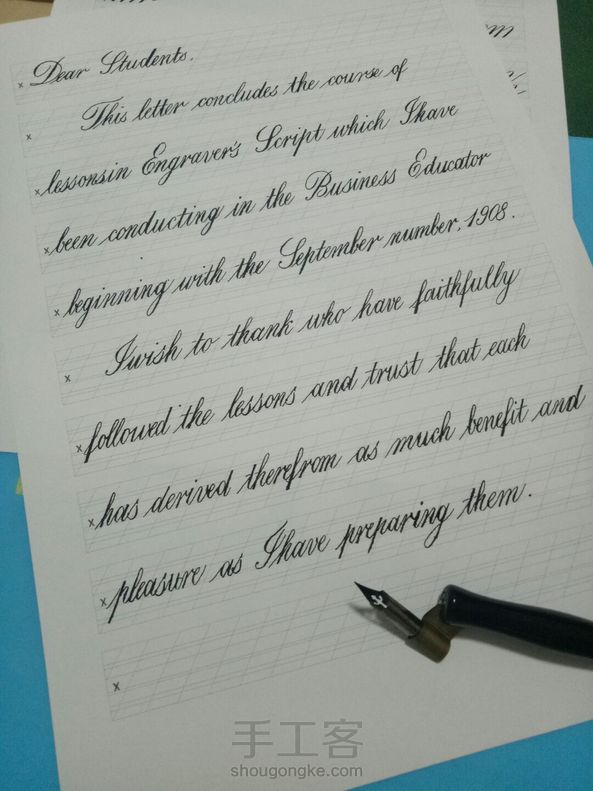 Dear Students.
This letter concludes the course of
lessons in Engraver's Script which I have
been conducting in the Business Educator
beginning with the September number, 1908.
I wish to thank who have faithfully
followed the lessons and trust that each
has derived therefrom as much benefit and
pleasure as I have preparing them.
手工客
shougongke.com